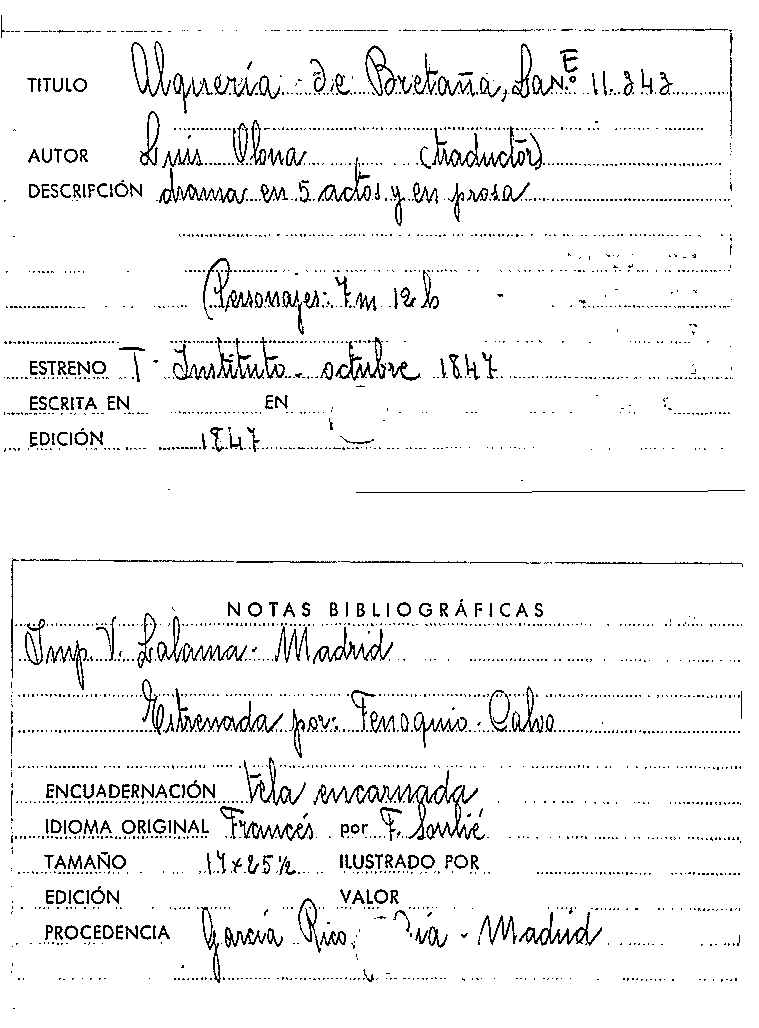 TITULO Alquería de Bretaña, La N.º E 11.343
AUTOR Luis Olona (traductor)
DESCRIPCIÓN drama en 5 actos y en prosa
Personajes: 7 m 12 h
ESTRENO T. Instituto - octubre 1847
ESCRITA EN EN
EDICIÓN 1847
NOTAS BIBLIOGRÁFICAS
Imp. V. Lalama - Madrid
Estrenada por: Tenoquio - Calvo
ENCUADERNACIÓN tela encarnada
IDIOMA ORIGINAL Francés por F. Soulié
TAMAÑO 17 x 25 ½ ILUSTRADO POR
EDICIÓN VALOR
PROCEDENCIA García Rico, - Madrid